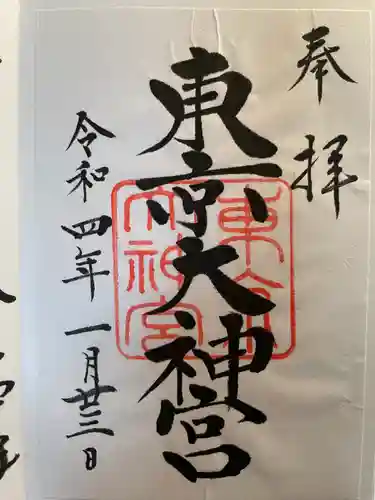 奉拝
東京大神宮
令和四年一月廿三日
東京大神宮